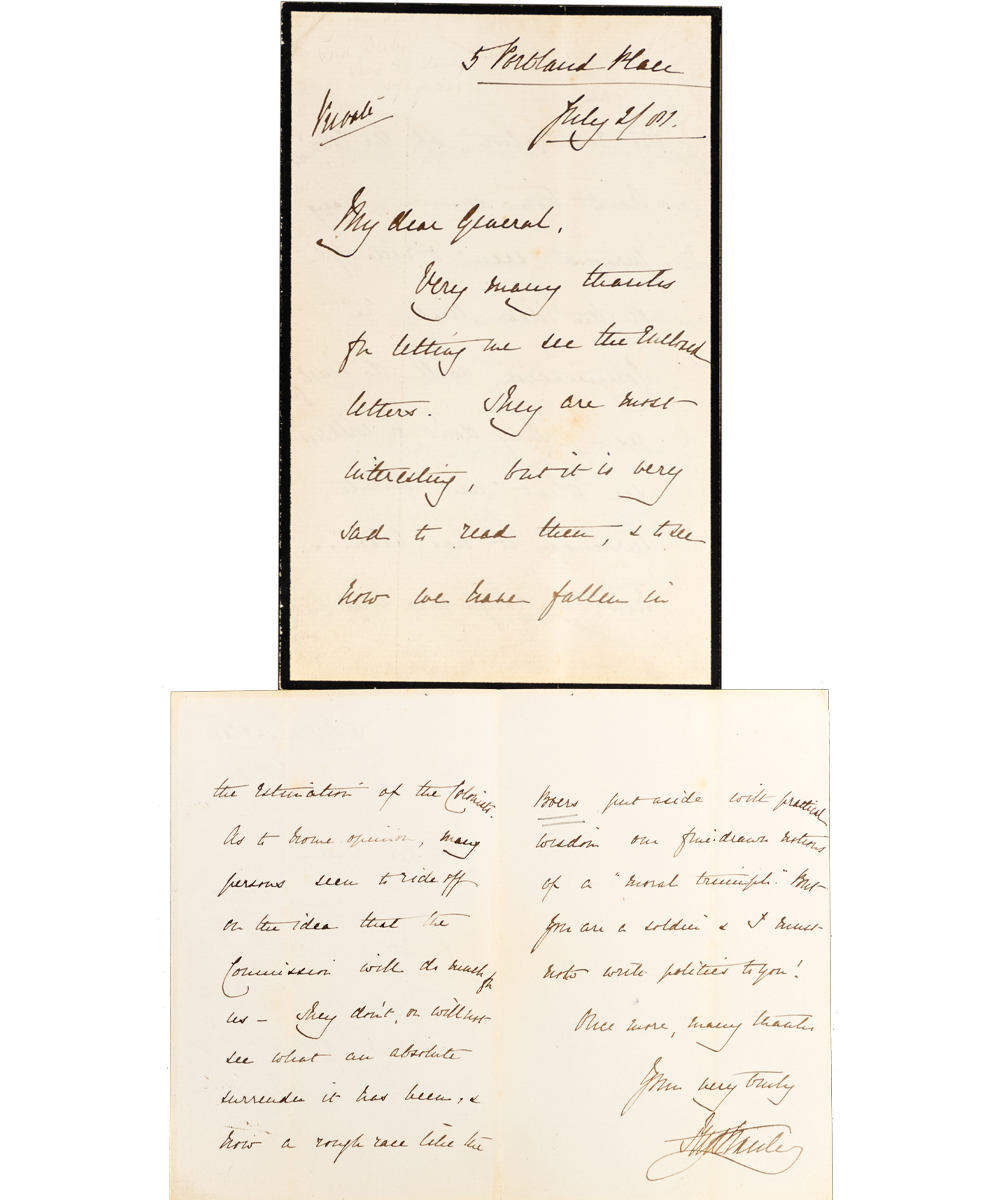 5 Portland Place
July 2/81.
Private
My dear General,
Very many thanks
for letting me see the Enclosed
letters. They are most
interesting, but it is very
sad to read them, & to see
how we have fallen in
the Estimation of the Colonists.
As to home opinion, many
persons seem to ride off
on the idea that the
Commission will do much for
us – They don't, or will not
see what an absolute
surrender it has been, &
how a rough race like the
Boers put aside with practical
wisdom our fine-drawn notions
of a "moral triumph." But
you are a soldier & I must
not write politics to you!
Once more, many thanks
Yours very truly